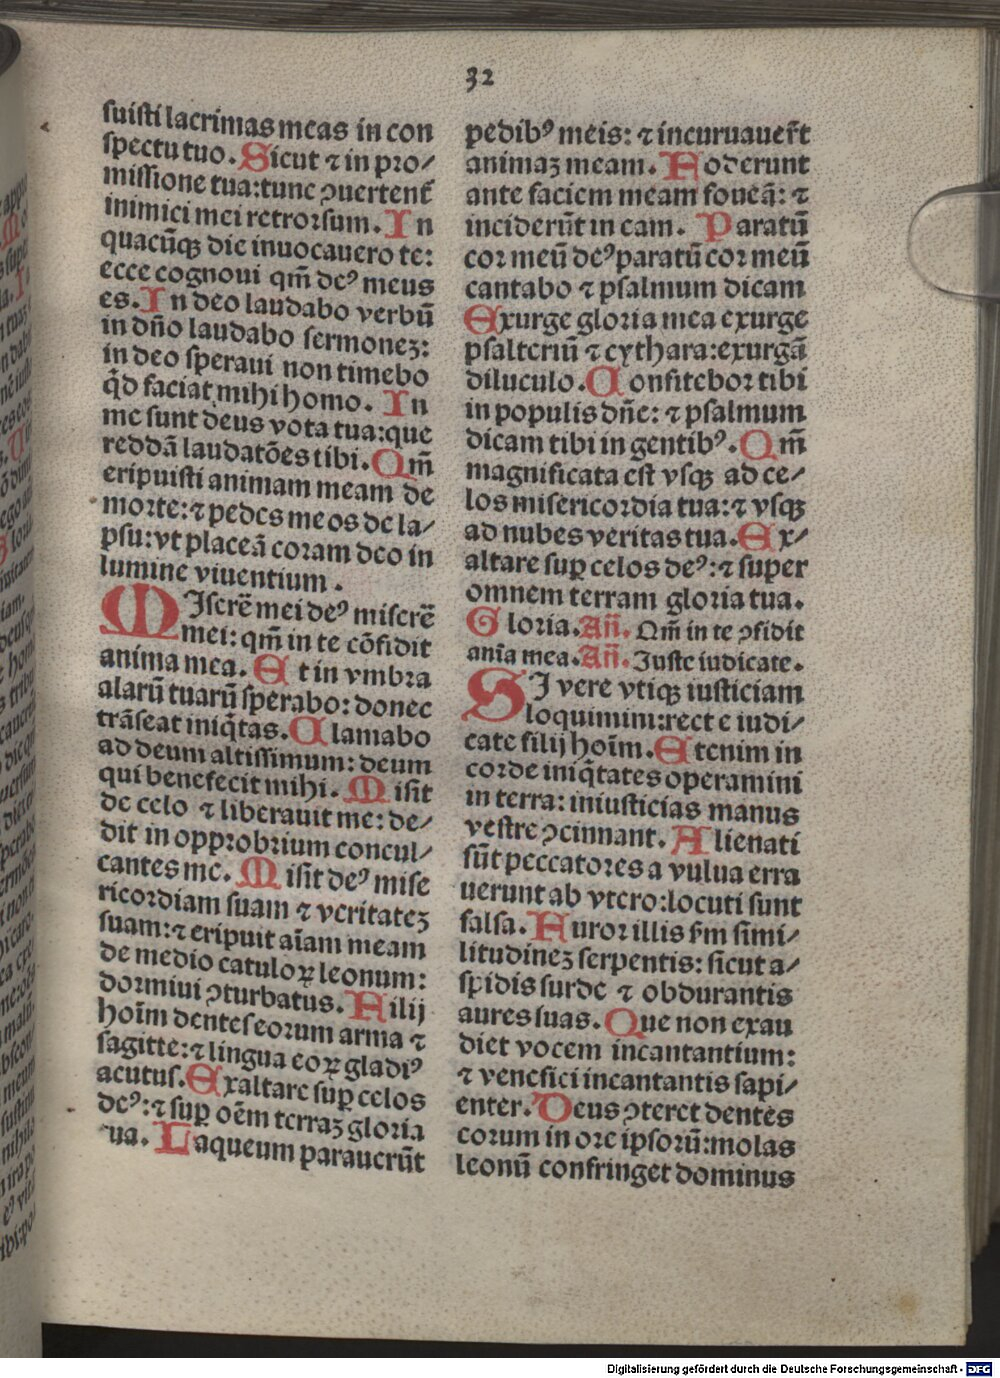 32
suisti lacrimas meas in con
spectu tuo. Sicut ⁊ in pro/
missione tua: tunc ꝯuertent᷑
inimici mei retrorsum. In
quacūqꝫ die inuocauero te:
ecce cognoui qm̄ deꝰ meus
es. In deo laudabo verbū
in dn̄o laudabo sermonez:
in deo speraui non timebo
qͥd faciat mihi homo. In
me sunt deus vota tua: que
reddā laudatōes tibi. Qm̄
eripuisti animam meam de
morte: ⁊ pedes meos de la/
psu: vt placeā coram deo in
lumine viuentium.
MIserē mei deꝰ miserē
mei: qm̄ in te cōfidit
anima mea. Et in vmbra
alarū tuarū sperabo: donec
trāseat iniq̄tas. Clamabo
ad deum altissimum: deum
qui benefecit mihi. Misit
de celo ⁊ liberauit me: de/
dit in opprobrium concul/
cantes me. Misit deꝰ mise
ricordiam suam ⁊ veritatez
suam: ⁊ eripuit aīam meam
de medio catuloꝝ leonum:
dormiui ꝯturbatus. Filij
hoīm dentes eorum arma ⁊
sagitte: ⁊ lingua eoꝝ gladiꝰ
acutus. Exaltare suꝑ celos
deꝰ: ⁊ suꝑ oēm terraz gloria
tua. Laqueum parauerūt
pedibꝰ meis: ⁊ incuruauer̄t
animaz meam. Foderunt
ante faciem meam foueā: ⁊
inciderūt in eam. Paratū
cor meū deꝰ paratū cor meū
cantabo ⁊ psalmum dicam
Exurge gloria mea exurge
psalteriū ⁊ cythara: exurgā
diluculo. Confitebor tibi
in populis dn̄e: ⁊ psalmum
dicam tibi in gentibꝰ. Qm̄
magnificata est vsqꝫ ad ce/
los misericordia tua: ⁊ vsqꝫ
ad nubes veritas tua. Ex/
altare suꝑ celos deꝰ: ⁊ super
omnem terram gloria tua.
Gloria. Añ. Qm̄ in te ꝯfidit
anīa mea. Añ. Juste iudicate.
SI vere vtiqꝫ iusticiam
loquimini: recte iudi/
cate filij hoīm. Etenim in
corde iniq̄tates operamini
in terra: iniusticias manus
vestre ꝯcinnant. Alienati
sūt peccatores a vulua erra
uerunt ab vtero: locuti sunt
falsa. Furor illis fm simi/
litudinez serpentis: sicut a/
spidis surde ⁊ obdurantis
aures suas. Que non exau
diet vocem incantantium:
⁊ venefici incantantis sapi/
enter. Deus ꝯteret dentes
eorum in ore ipsorū: molas
leonū confringet dominus
Digitalisierung gefördert durch die Deutsche Forschungsgemeinschaft - DFG